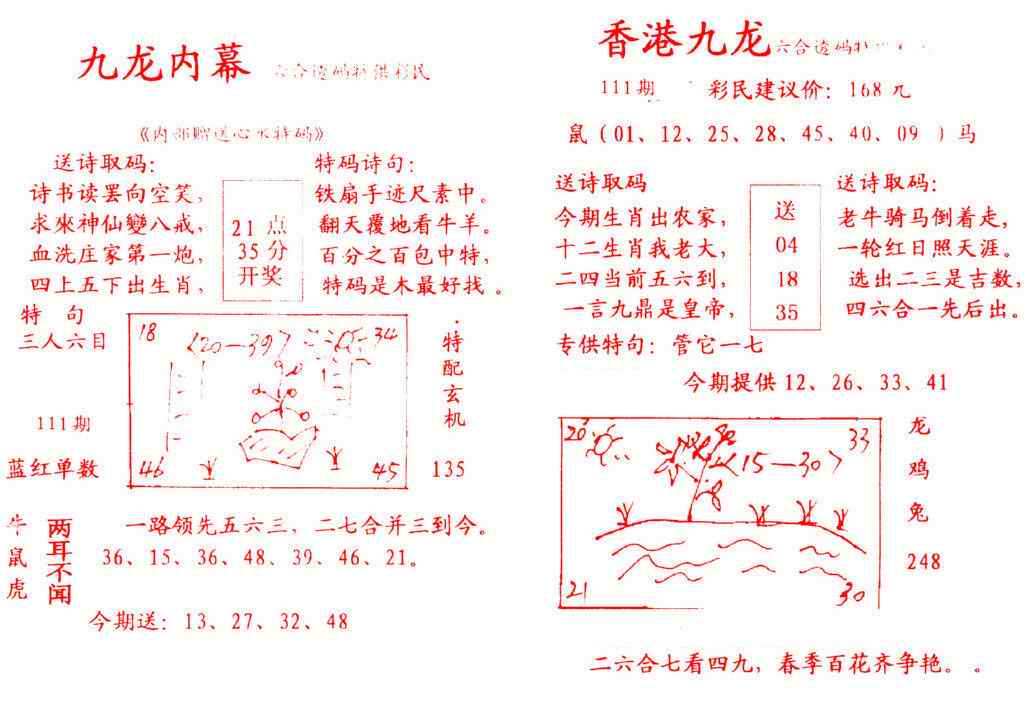 九龙内幕
六合透码特供彩民
《内部赠送心水特码》
送诗取码：
诗书读罢向空笑，
求來神仙變八戒，
血洗庄家第一炮，
四上五下出生肖，
21 点
35 分
开奖
特码诗句：
铁扇手迹尺素中。
翻天覆地看牛羊。
百分之百包中特，
特码是木最好找。
特 句
三人六目
111期
蓝红单数
18
〈20—39〉
34
46
45
特配玄机
135
牛
鼠
虎
两耳不闻
一路领先五六三，二七合并三到今。
36、15、36、48、39、46、21。
今期送：13、27、32、48
香港九龙
六合透码特
111期 彩民建议价：168元
鼠（01、12、25、28、45、40、09 ）马
送诗取码
今期生肖出农家，
十二生肖我老大，
二四当前五六到，
一言九鼎是皇帝，
送
04
18
35
送诗取码：
老牛骑马倒着走，
一轮红日照天涯。
选出二三是吉数，
四六合一先后出。
专供特句：管它一七
今期提供 12、26、33、41
20
33
〈15—30〉
21
30
龙
鸡
兔
248
二六合七看四九，春季百花齐争艳。。